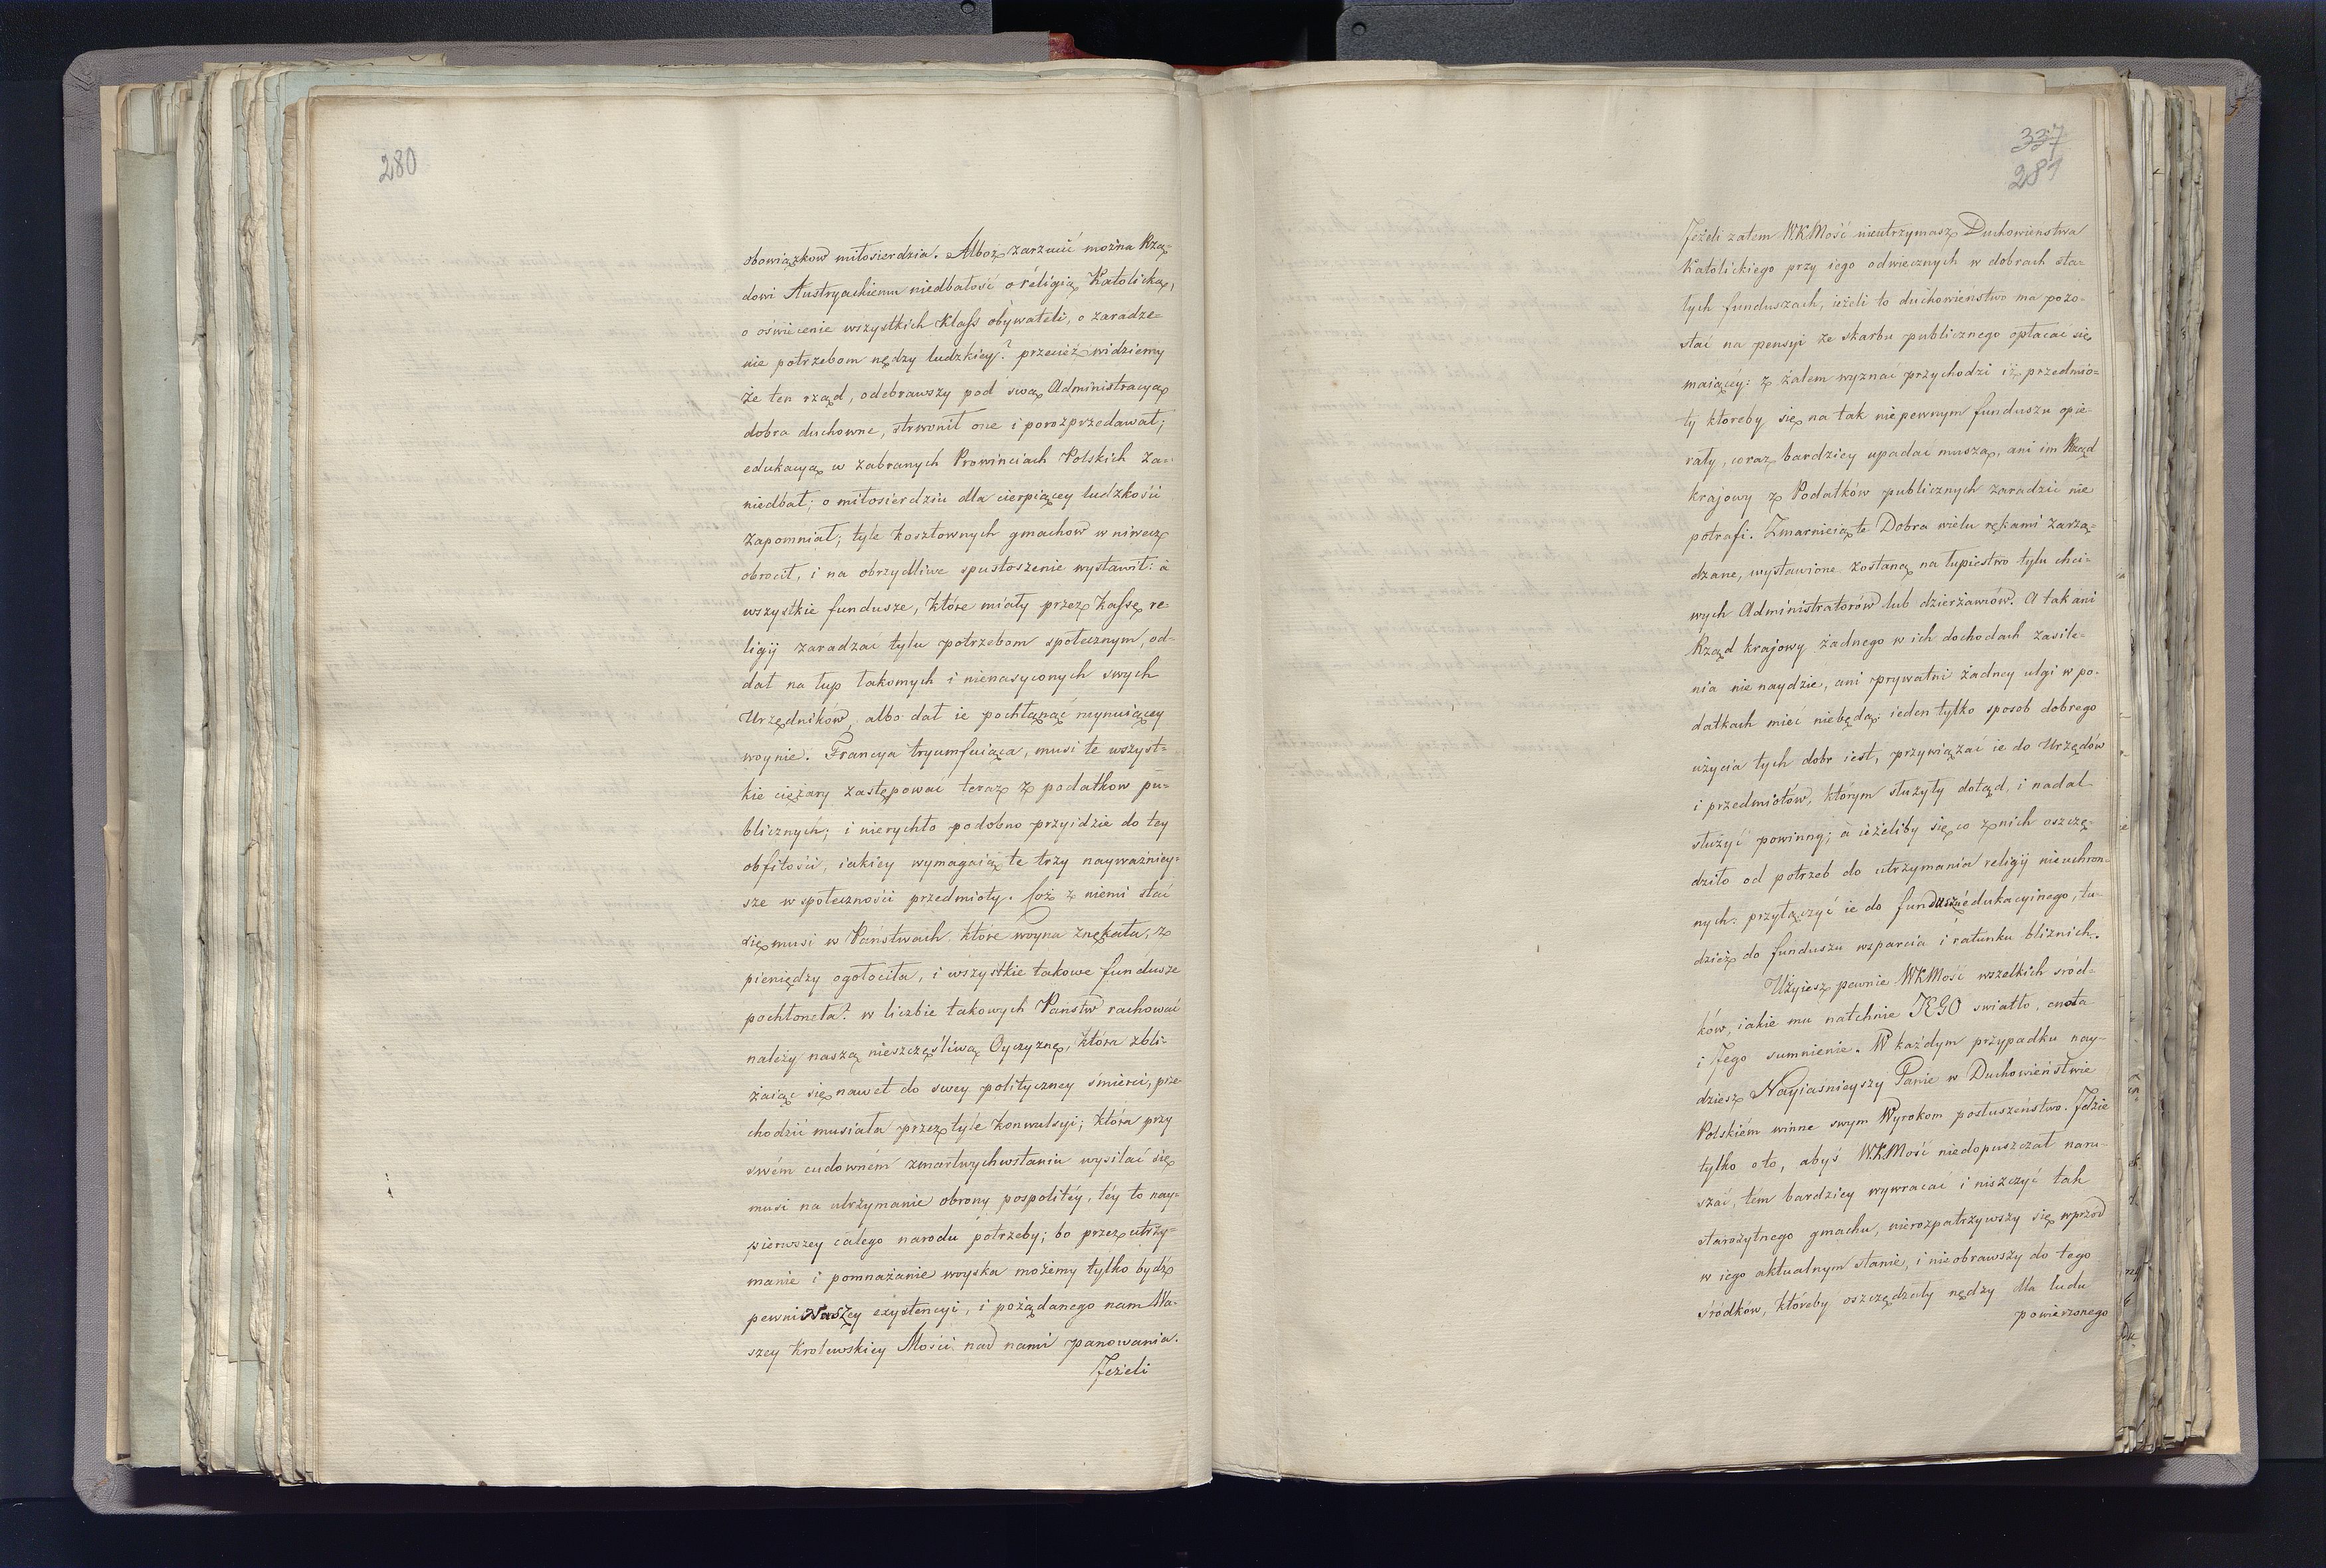 280
obowiązkow miłosierdzia. Alboż zarzucić można Rzą=
dowi Austryackiemu niedbałość o religią Katolicką,
o oświecenie wszystkich Klass obywateli, o zaradze=
nie potrzebom nędzy ludzkiey? przecież widziemy
że ten rząd, odebrawszy pod swą Administracyą
dobra duchowne, strwonił one i porozprzedawał;
edukacyą w zabranych Prowinciach Polskich za=
niedbał; o miłosierdziu dla cierpiącey ludzkości
zapomniał; tyle kosztownych gmachow w niwecz
obrocił, i na obrzydliwe spustoszenie wystawił: a
wszystkie fundusze, które miały przez Kassę re=
ligij zaradzać tylu potrzebom społecznym, od=
dał na łup łakomych i nienasyconych swych
Urzędników, albo dał ie pochłąnąć ruynuiącey
woynie. Francya tryumfuiąca, musi te wszyst=
kie ciężary zastępować teraz z podatkow pu=
blicznych; i nierychło podobno przyidzie do tey
obfitości, iakiey wymagaią te trzy nayważniey=
sze w społeczności przedmioty. Coż z niemi stać
się musi w Państwach które woyna znękała, z
pieniędzy ogołociła, i wszystkie takowe fundusze
pochłoneła? w liczbie takowych Państw rachować
należy naszą nieszczęśliwą Oyczyznę, która zbli=
żaiąc się nawet do swey polityczney śmierci, prze=
chodzić musiała przez tyle konwulsyi; która przy
swém cudowném zmartwychwstaniu wysilać się
musi na utrzymanie obrony pospolitéy, téy to nay=
pierwszey całego narodu potrzeby; bo przez utrzy=
manie i pomnażanie woyska możemy tylko bydź
pewni Naszey exystencyi, i pożądanego nam Wa=
szey Krolewskiey Mości nad nami panowania.
Jeżeli
337
281
Jeżeli zatem W.K.Mość nieutrzymasz Duchowieństwa
Katolickiego przy iego odwiecznych w dobrach sta=
łych funduszach, ieżeli to duchowieństwo ma pozo=
stać na pensyi ze skarbu publicznego opłacać się
maiącéy: z żalem wyznać przychodzi iż przedmio=
ty ktoreby się na tak niepewnym funduszu opie=
rały, coraz bardziey upadać muszą, ani im Rząd
krajowy z Podatków publicznych zaradzić nie
potrafi. Zmarnieią te Dobra wielu rękami zarzą=
dzane, wystawione zostaną na łupiestwo tylu chci=
wych Administratorów lub dzierżawców. A tak ani
Rząd krajowy żadnego w ich dochodach zasile=
nia nie naydzie, ani prywatni żadney ulgi w po=
datkach mieć niebędą: ieden tylko sposob dobrego
użycia tych dobr iest, przywiązać ie do Urzędów
i przedmiotów, którym służyły dotąd, i nadal
służyć powinny; a ieżeliby się co z nich oszczę=
dziło od potrzeb do utrzymania religij nieuchron=
nych: przyłączyć ie do funduszu edukacyinego, tu=
dzież do funduszu wsparcia i ratunku bliznich.
Użyiesz pewnie WKMość wszelkich sród=
ków, iakie mu natchnie JEGO swiatło, cnota
i Jego sumnienie. W każdym przypadku nay=
dziesz Nayiasnieyszy Panie w Duchowieństwie
Polskiém winne swym Wyrokom posłuszeństwo. Jdzie
tylko oto, abyś W.K.Mość niedopuszczał naru=
szać, tém bardziey wywracać i niszczyć tak
starożytnego gmachu, nierozpatrzywszy się wprzod
w iego aktualnym stanie, i nieobrawszy do tego
śródków, któreby oszczędzały nędzy dla ludu
powierzonego